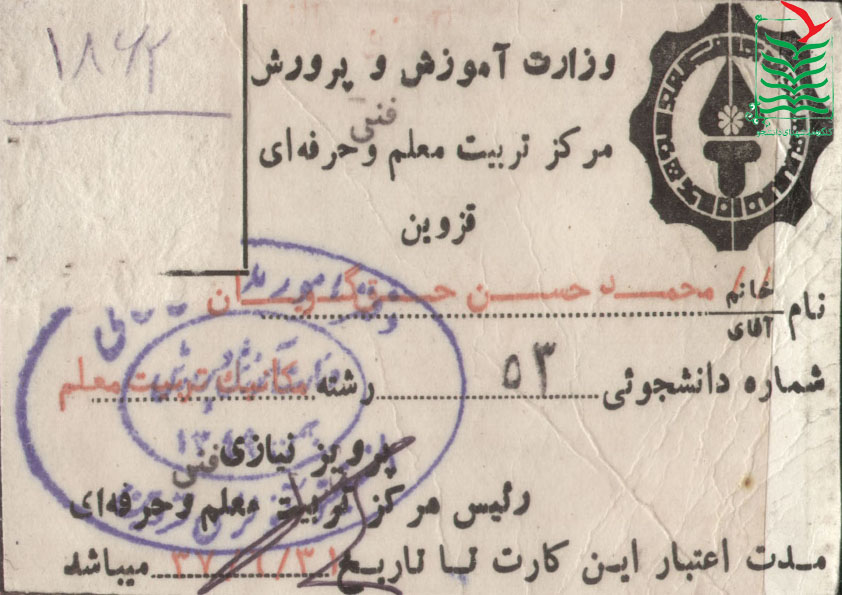 ۱۸۶۲
وزارت آموزش و پرورش
فنی
مرکز تربیت معلم وحرفه‌ای
قزوین
نام خانم آقای محمد حسن حق‌گویان
شماره دانشجوئی ۵۳ رشته مکانیک تربیت معلم
پرویز نیازی
فنی
رئیس مرکز تربیت معلم وحرفه‌ای
مدت اعتبار این کارت تا تاریخ میباشد